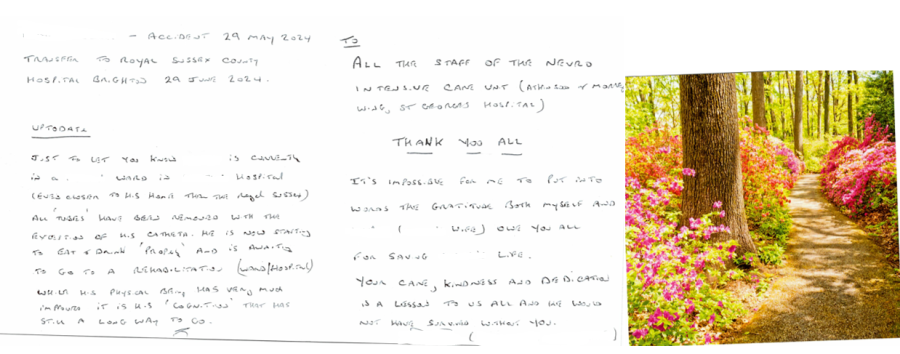 - ACCIDENT 29 MAY 2024
TRANSFER TO ROYAL SUSSEX COUNTY
HOSPITAL BRIGHTON 29 JUNE 2024.
UPTODATE
JUST TO LET YOU KNOW IS CURRENTLY
IN A WARD IN HOSPITAL
(EVEN CLOSER TO HIS HOME THAN THE ROYAL SUSSEX)
ALL 'TUBES' HAVE BEEN REMOVED WITH THE
EXCEPTION OF HIS CATHETA. HE IS NOW STARTING
TO EAT & DRINK 'PROPERLY' AND IS AWAITING
TO GO TO A REHABILITATION (WARD/HOSPITAL)
WHILE HIS PHYSICAL BEING HAS VERY MUCH
IMPROVED IT IS HIS 'COGNITION' THAT HAS
STILL A LONG WAY TO GO.
TO
ALL THE STAFF OF THE NEURO
INTENSIVE CARE UNIT (ATKINSON & MORLEY
WING, ST GEORGES HOSPITAL)
THANK YOU ALL
IT'S IMPOSSIBLE FOR ME TO PUT INTO
WORDS THE GRATITUDE BOTH MYSELF AND
( WIFE) OWE YOU ALL
FOR SAVING LIFE.
YOUR CARE, KINDNESS AND DEDICATION
IS A LESSON TO US ALL AND HE WOULD
NOT HAVE SURVIVED WITHOUT YOU.
( )